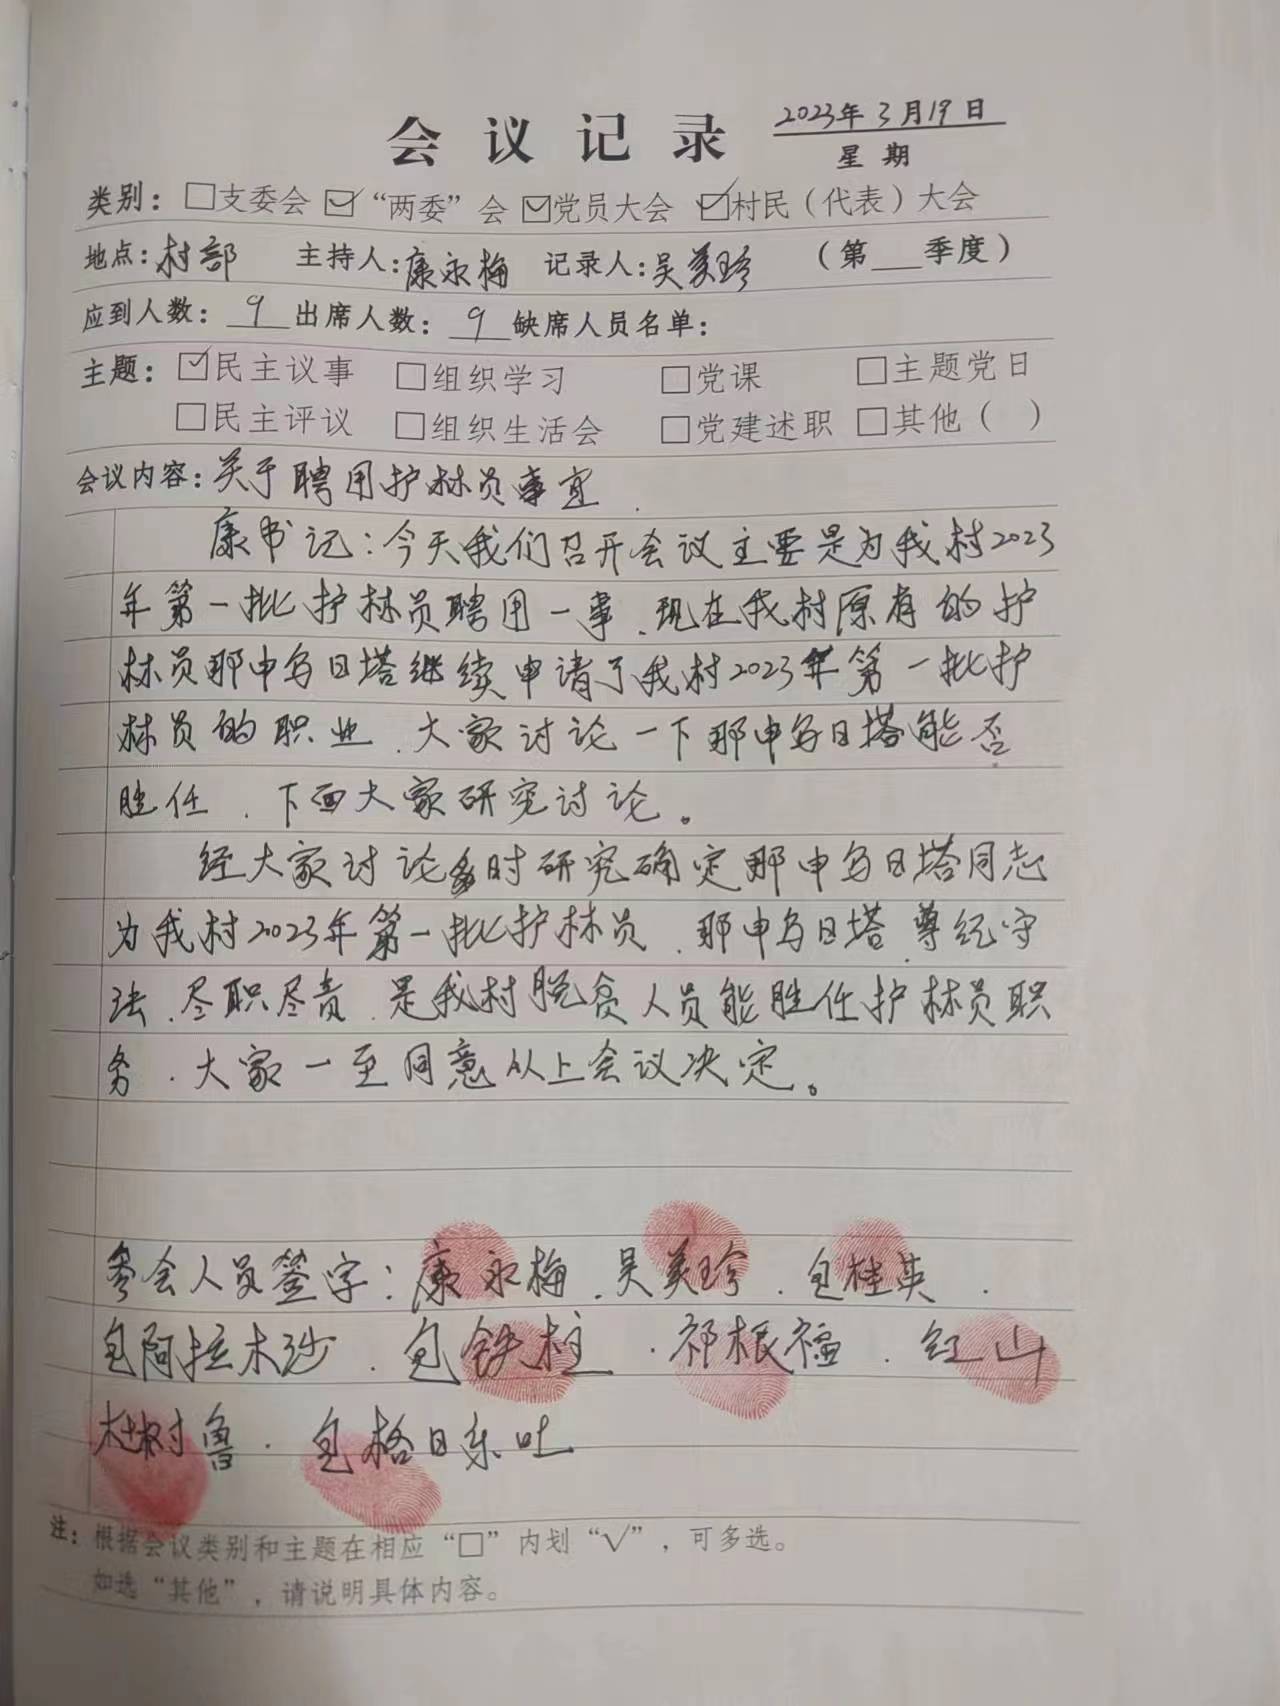 会议记录 2023年3月19日
星期
类别：□支委会 ☑“两委”会 ☑党员大会 ☑村民（代表）大会
地点：村部 主持人：康永梅 记录人：吴美珍 （第 季度）
应到人数：9 出席人数：9 缺席人员名单：
主题：☑民主议事 □组织学习 □党课 □主题党日
□民主评议 □组织生活会 □党建述职 □其他（ ）
会议内容：关于聘用护林员事宜.
康书记：今天我们召开会议主要是为我村2023
年第一批护林员聘用一事、现在我村原有的护
林员那申乌日塔继续申请了我村2023年第一批护
林员的职业、大家讨论一下那申乌日塔能否
胜任、下面大家研究讨论。
经大家讨论多时研究确定那申乌日塔同志
为我村2023年第一批护林员、那申乌日塔尊纪守
法、尽职尽责、是我村脱贫人员能胜任护林员职
务、大家一至同意以上会议决定。
参会人员签字：康永梅、吴美珍、包桂英、
包阿拉木沙、包铁柱、祁根福、红山
树鲁、包格日乐吐
注：根据会议类别和主题在相应“□”内划“√”，可多选。
如选“其他”，请说明具体内容。